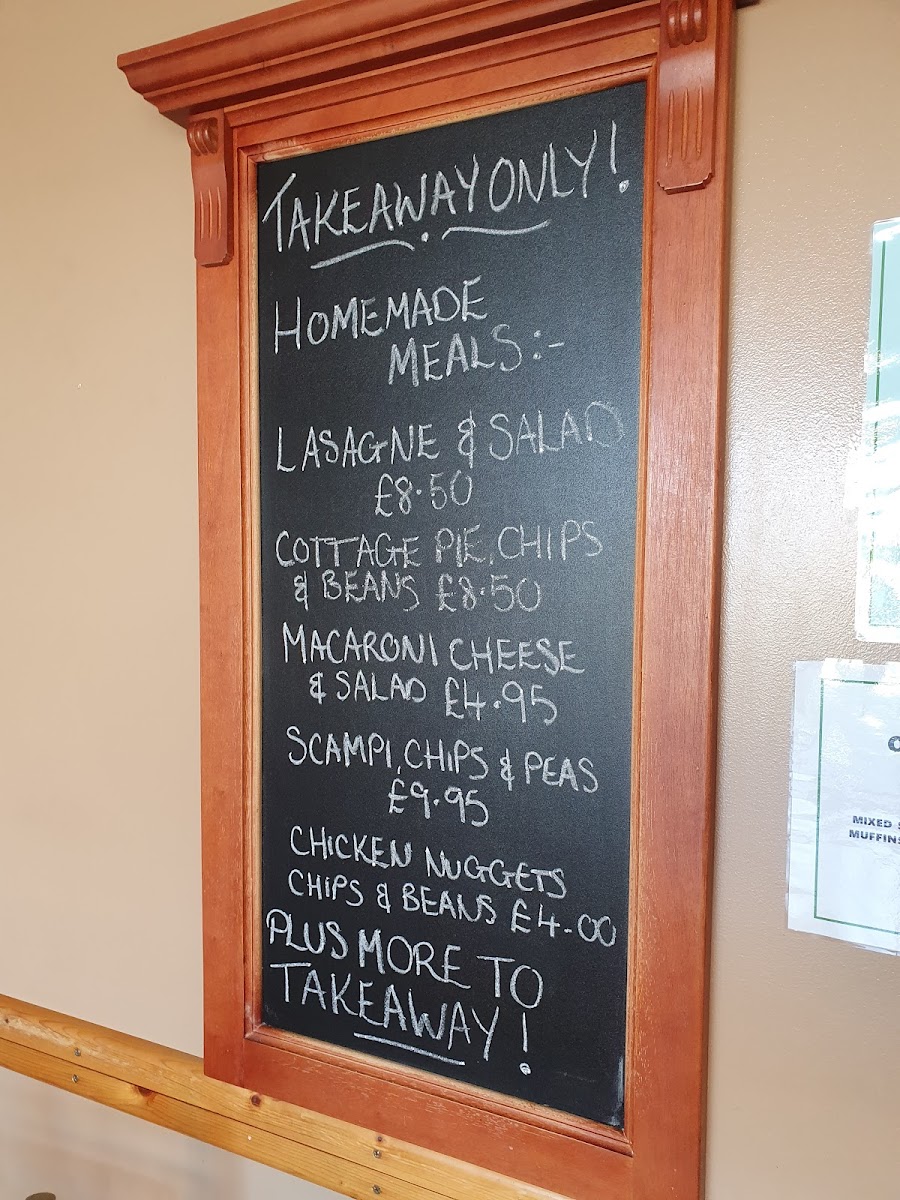 TAKEAWAY ONLY!
HOMEMADE
MEALS:-
LASAGNE & SALAD
£8.50
COTTAGE PIE, CHIPS
& BEANS £8.50
MACARONI CHEESE
& SALAD £4.95
SCAMPI, CHIPS & PEAS
£9.95
CHICKEN NUGGETS
CHIPS & BEANS £4-00
PLUS MORE TO
TAKEAWAY!
MIXED
MUFFINS